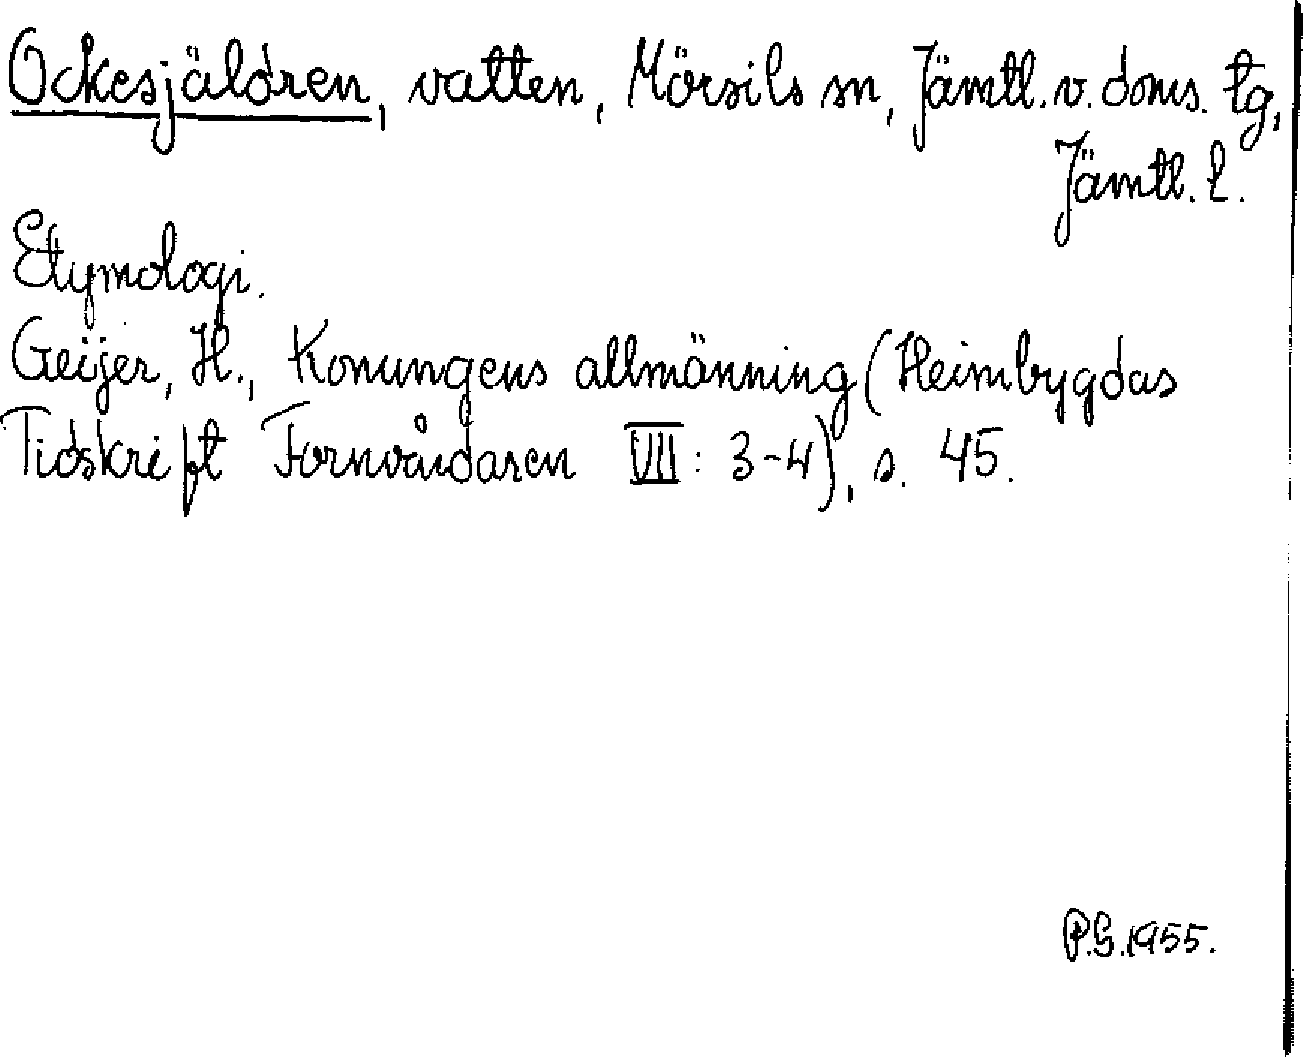 Ockesjäldren, vatten, Mörsils sn, Jämtl. v. doms. tg,
Jämtl. l.
Etymologi.
Geijer, H., Konungens allmänning (Heimbygdas
Tidskrift Fornvårdaren VII: 3-4), s. 45.
P.G. 1955.